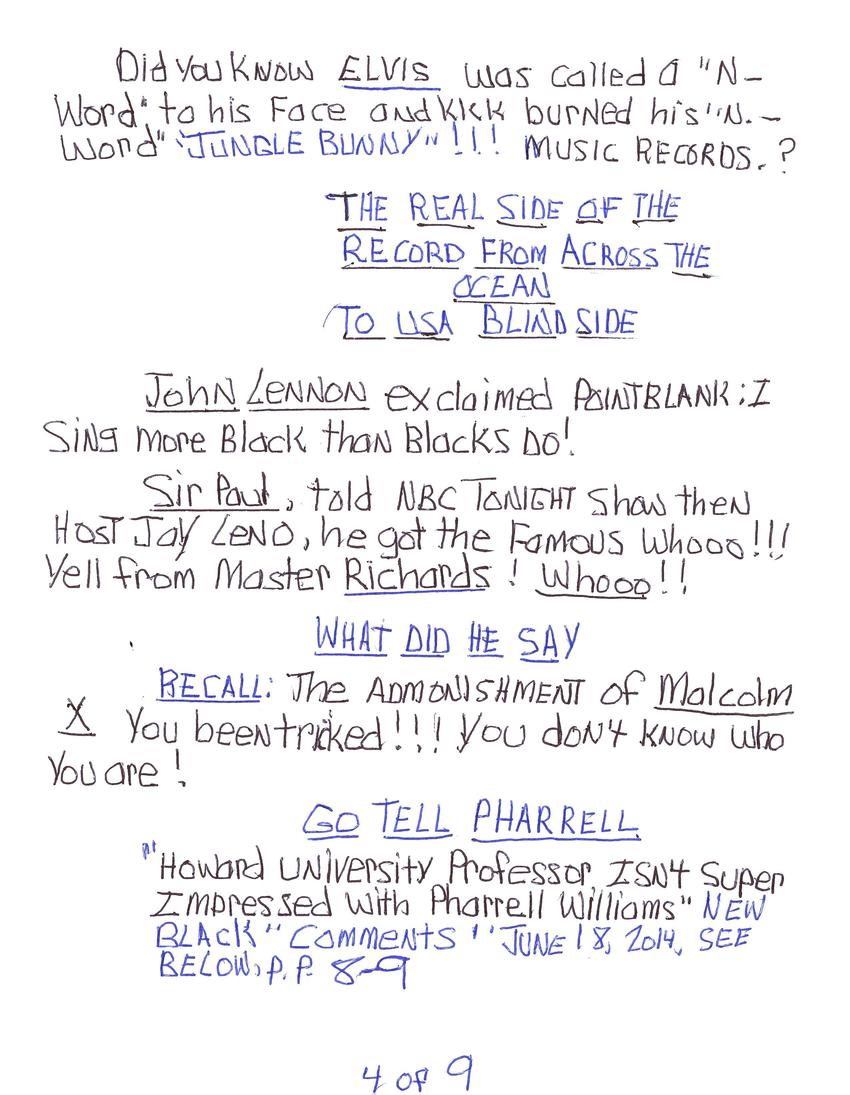 Did You Know ELVIS was called a "N-
Word" to his Face and KICK burned his "N.-
Word" "JUNGLE BUNNY"!!! MUSIC RECORDS.?
THE REAL SIDE OF THE
RECORD FROM ACROSS THE
OCEAN
TO USA BLIND SIDE
John LENNON exclaimed POINTBLANK: I
Sing more Black than Blacks Do!
Sir Paul, told NBC TONIGHT Show then
HOST JAY LENO, he got the Famous Whooo!!!
Yell from Master Richards! Whooo!!
WHAT DID HE SAY
RECALL: The ADMONISHMENT of Malcolm
X You been tricked!!! You don't know who
You are!
GO TELL PHARRELL
"Howard University Professor Isn't Super
Impressed With Pharrell Williams" NEW
BLACK" Comments" JUNE 18, 2014, SEE
BELOW, p.p. 8-9
4 of 9